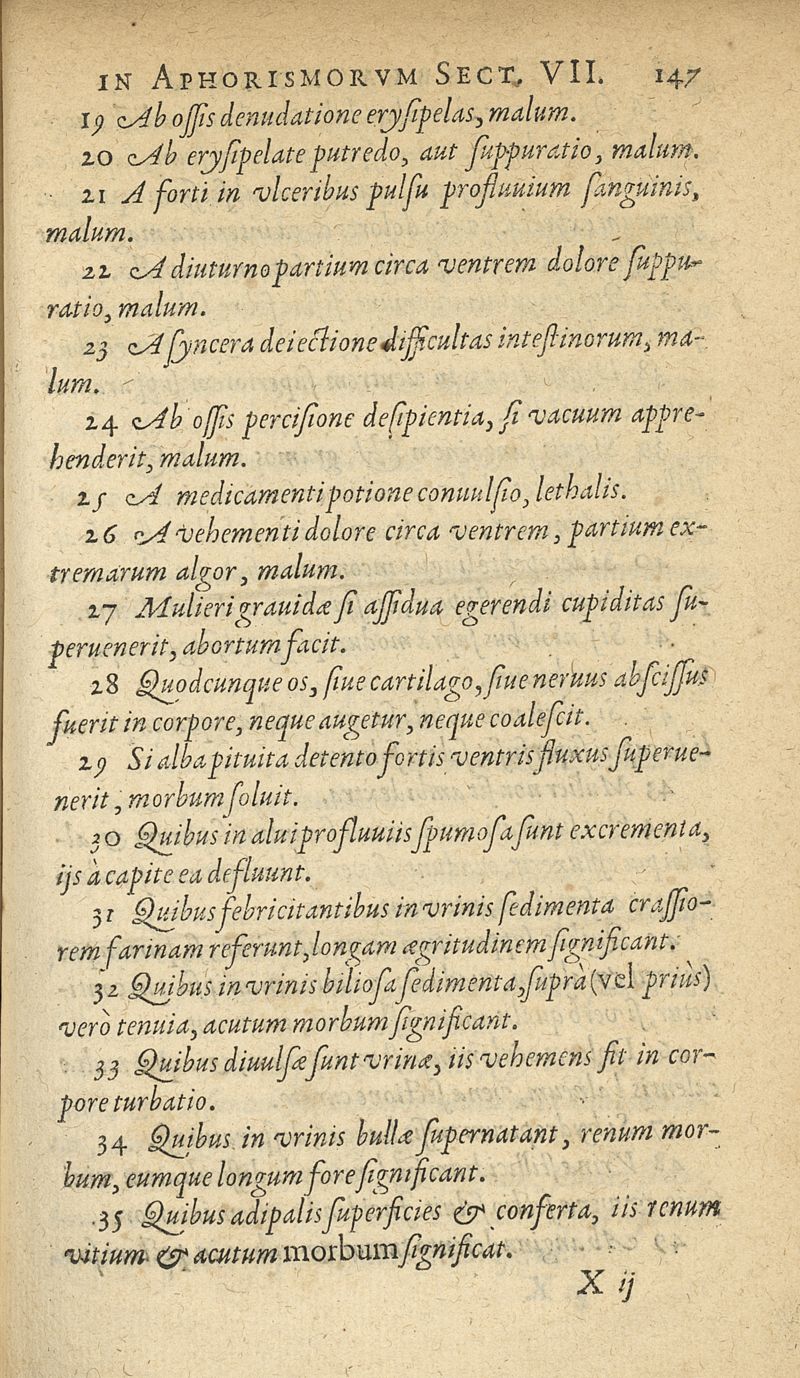 IN APHORISMORVM SECT. VII. 147
19 Ab oſſis denudatione eryſipelas, malum.
20 Ab eryſipelate putredo, aut ſuppuratio, malum.
21 A forti in vlceribus pulſu profluuium ſanguinis,
malum.
22 A diuturno partium circa ventrem dolore ſuppu-
ratio, malum.
23 A ſyncera deiectione difficultas inteſtinorum, ma-
lum.
24 Ab oſſis perciſione deſipientia, ſi vacuum appre-
henderit, malum.
25 A medicamenti potione conuulſio, lethalis.
26 A vehementi dolore circa ventrem, partium ex-
tremarum algor, malum.
27 Mulieri grauidæ ſi aſſidua egerendi cupiditas ſu-
peruenerit, abortum facit.
28 Quodcunque os, ſiue cartilago, ſiue neruus abſciſſus
fuerit in corpore, neque augetur, neque coaleſcit.
29 Si alba pituita detento fortis ventris fluxus ſuperue-
nerit, morbum ſoluit.
30 Quibus in alui profluuiis ſpumoſa ſunt excrementa,
ijs à capite ea defluunt.
31 Quibus febricitantibus in vrinis ſedimenta craſſio-
rem farinam referunt, longam ægritudinem ſignificant.
32 Quibus in vrinis bilioſa ſedimenta, ſuprà (vel priùs)
verò tenuia, acutum morbum ſignificant.
33 Quibus diuulſæ ſunt vrinæ, iis vehemens fit in cor-
pore turbatio.
34 Quibus in vrinis bullæ ſupernatant, renum mor-
bum, eumque longum fore ſignificant.
35 Quibus adipalis ſuperficies & conferta, iis renum
vitium & acutum morbum ſignificat.
X ij